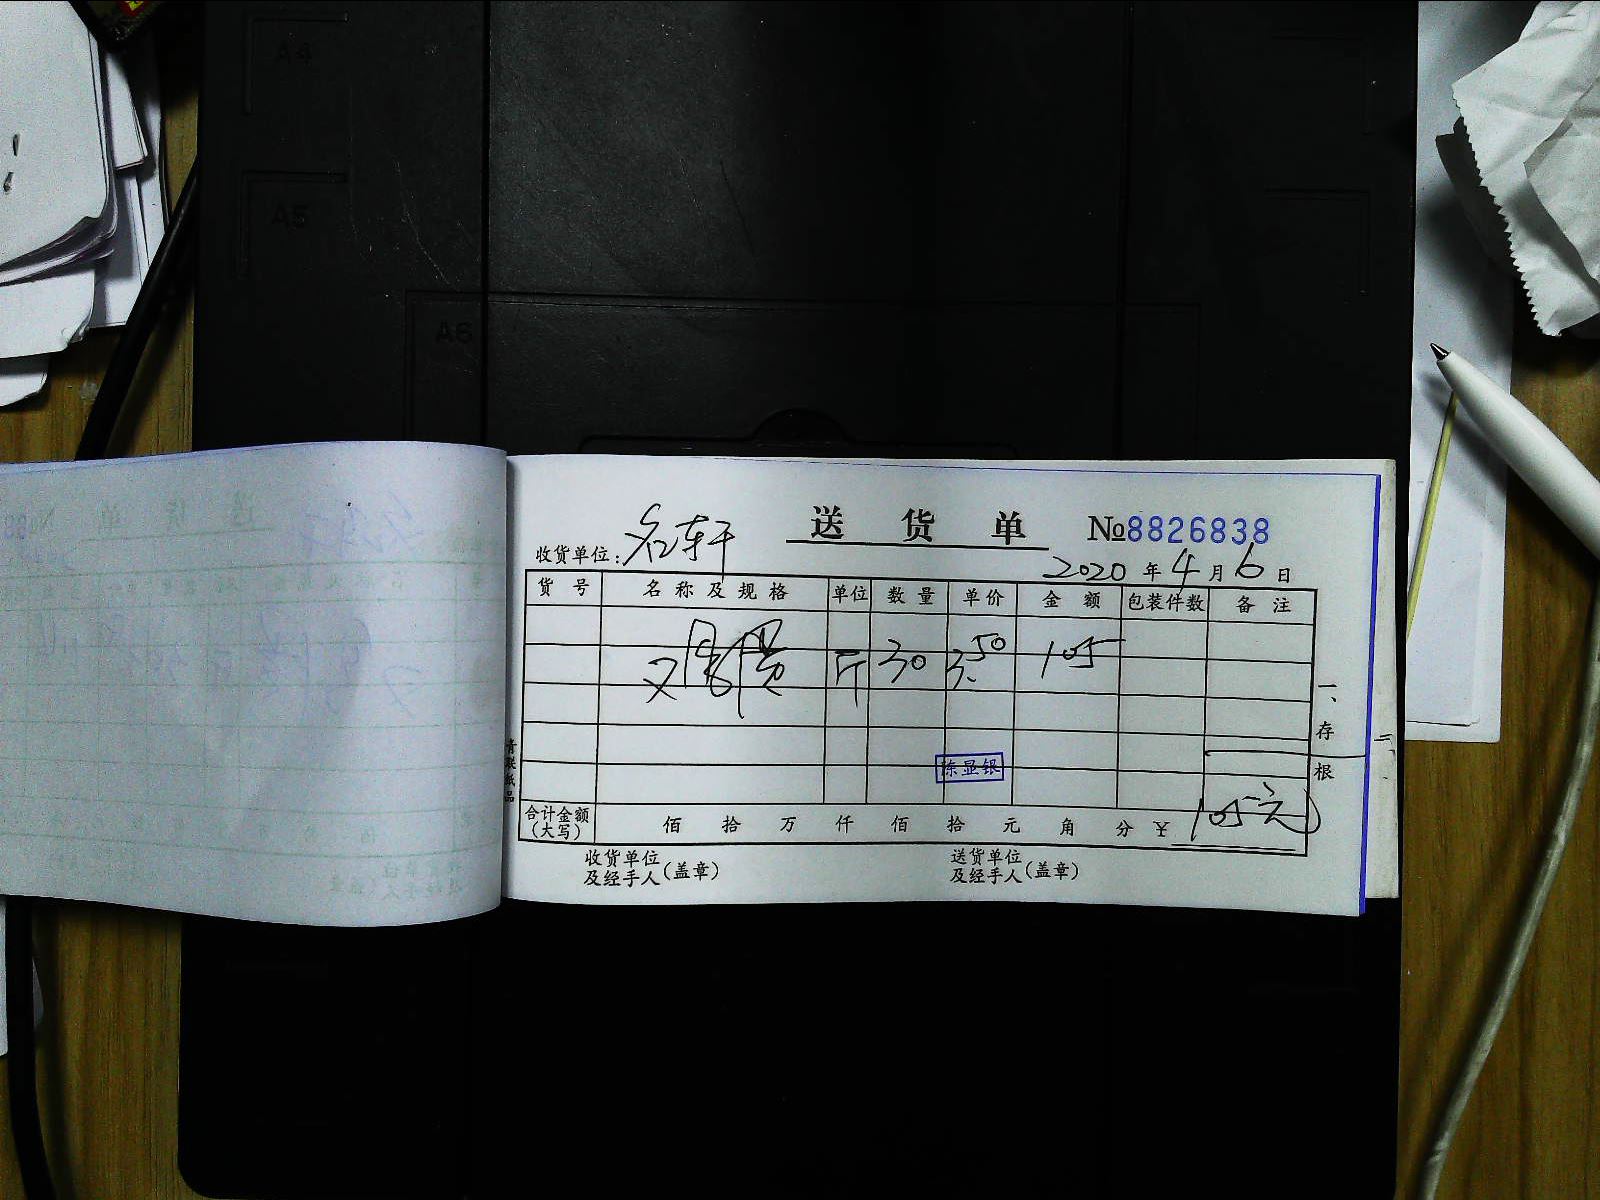 A4
A5
A6
送货单 №8826838
收货单位：名轩
2020年4月6日
货号 名称及规格 单位 数量 单价 金额 包装件数 备注
斤 30 3.50 105
陈显银
合计金额（大写） 佰 拾 万 仟 佰 拾 元 角 分 ¥ 105元
收货单位及经手人（盖章） 送货单位及经手人（盖章）
一、存根
青联纸品